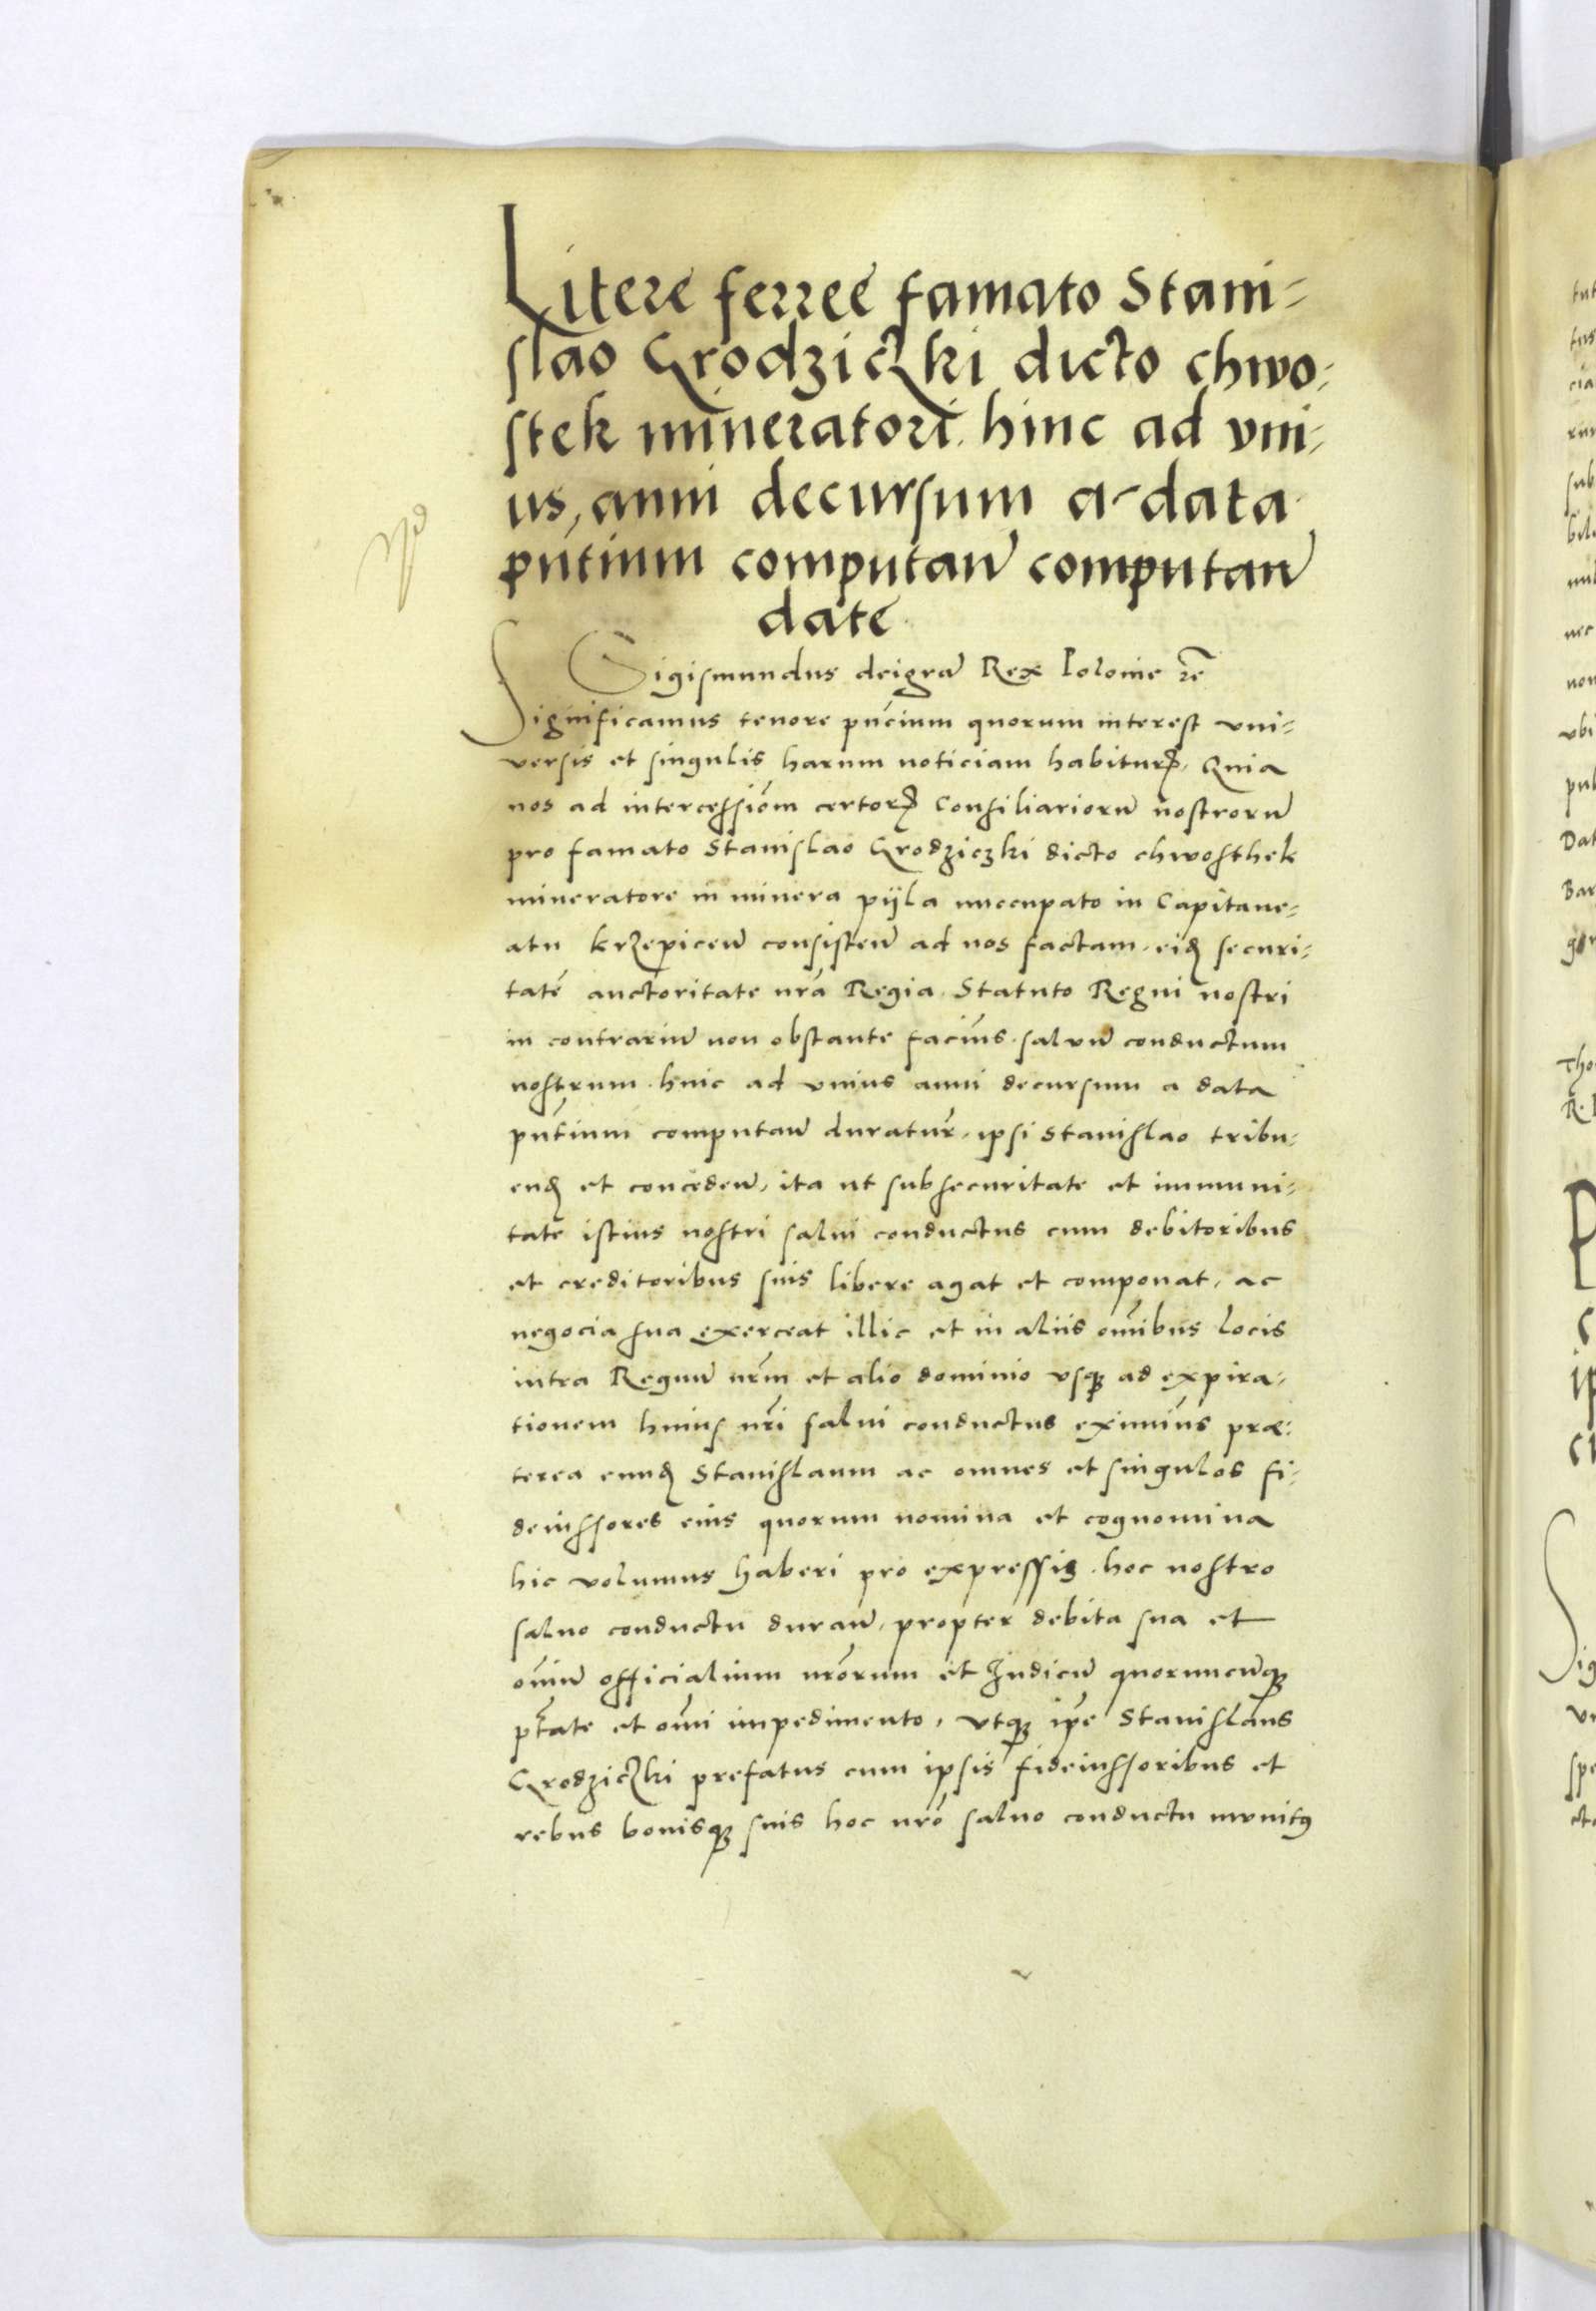 Litere ferree famato Stani=
slao Grodziczki dicto chwo=
stek mineratori. hinc ad vni=
us, anni decursum a data
pūtium computań computań
date
Sigismundus deigrā Rex Polonie rē
Significamus tenore pūcium quorum interest vni=
versis et singulis harum noticiam habiturꝝ. Quia
nos ad intercessiōm certorꝝ Consiliariorū nostrorū
pro famato Stanislao Grodziczki dicto chwosthek
mineratore in minera pijla nuccupato in Capitane=
atu krzepiceń consisteń ad nos factam. eidꝫ securi=
tatē auctoritate nrā Regia Statuto Regni nostri
in contrariū non obstante facimꝰ. salvū conductum
nostrum. hinc ad vnius anni decursum a data
pūtium computań duratur̄. ipsi Stanislao tribu=
endꝫ et concedeń, ita ut sub securitate et immuni=
tate istius nostri salui conductus cum debitoribus
et creditoribus suis libere agat et componat, ac
negocia sua exerceat illic et in aliis om̄ibus locis
intra Regnū nrm̄ et alio dominio vsqꝫ ad expira=
tionem huius nrī salui conductus eximimꝰ præ=
terea eundꝫ Stanislaum ac omnes et singulos fi=
deiussores eius quorum nomina et cognomina
hic volumus haberi pro expressis. hoc nostro
saluo conductu durań, propter debita sua et
om̄iū officialium nrōrum et Iudicū quorumcūqꝫ
ptāte et om̄i impedimento, vtqꝫ ip̄e Stanislaus
Grodziczki prefatus cum ipsis fideiussoribus et
rebus bonisqꝫ suis hoc nrō saluo conductu munitꝰ